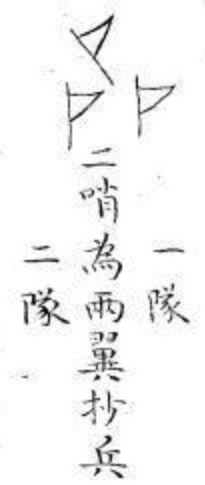 一隊
二哨為兩翼抄兵
二隊